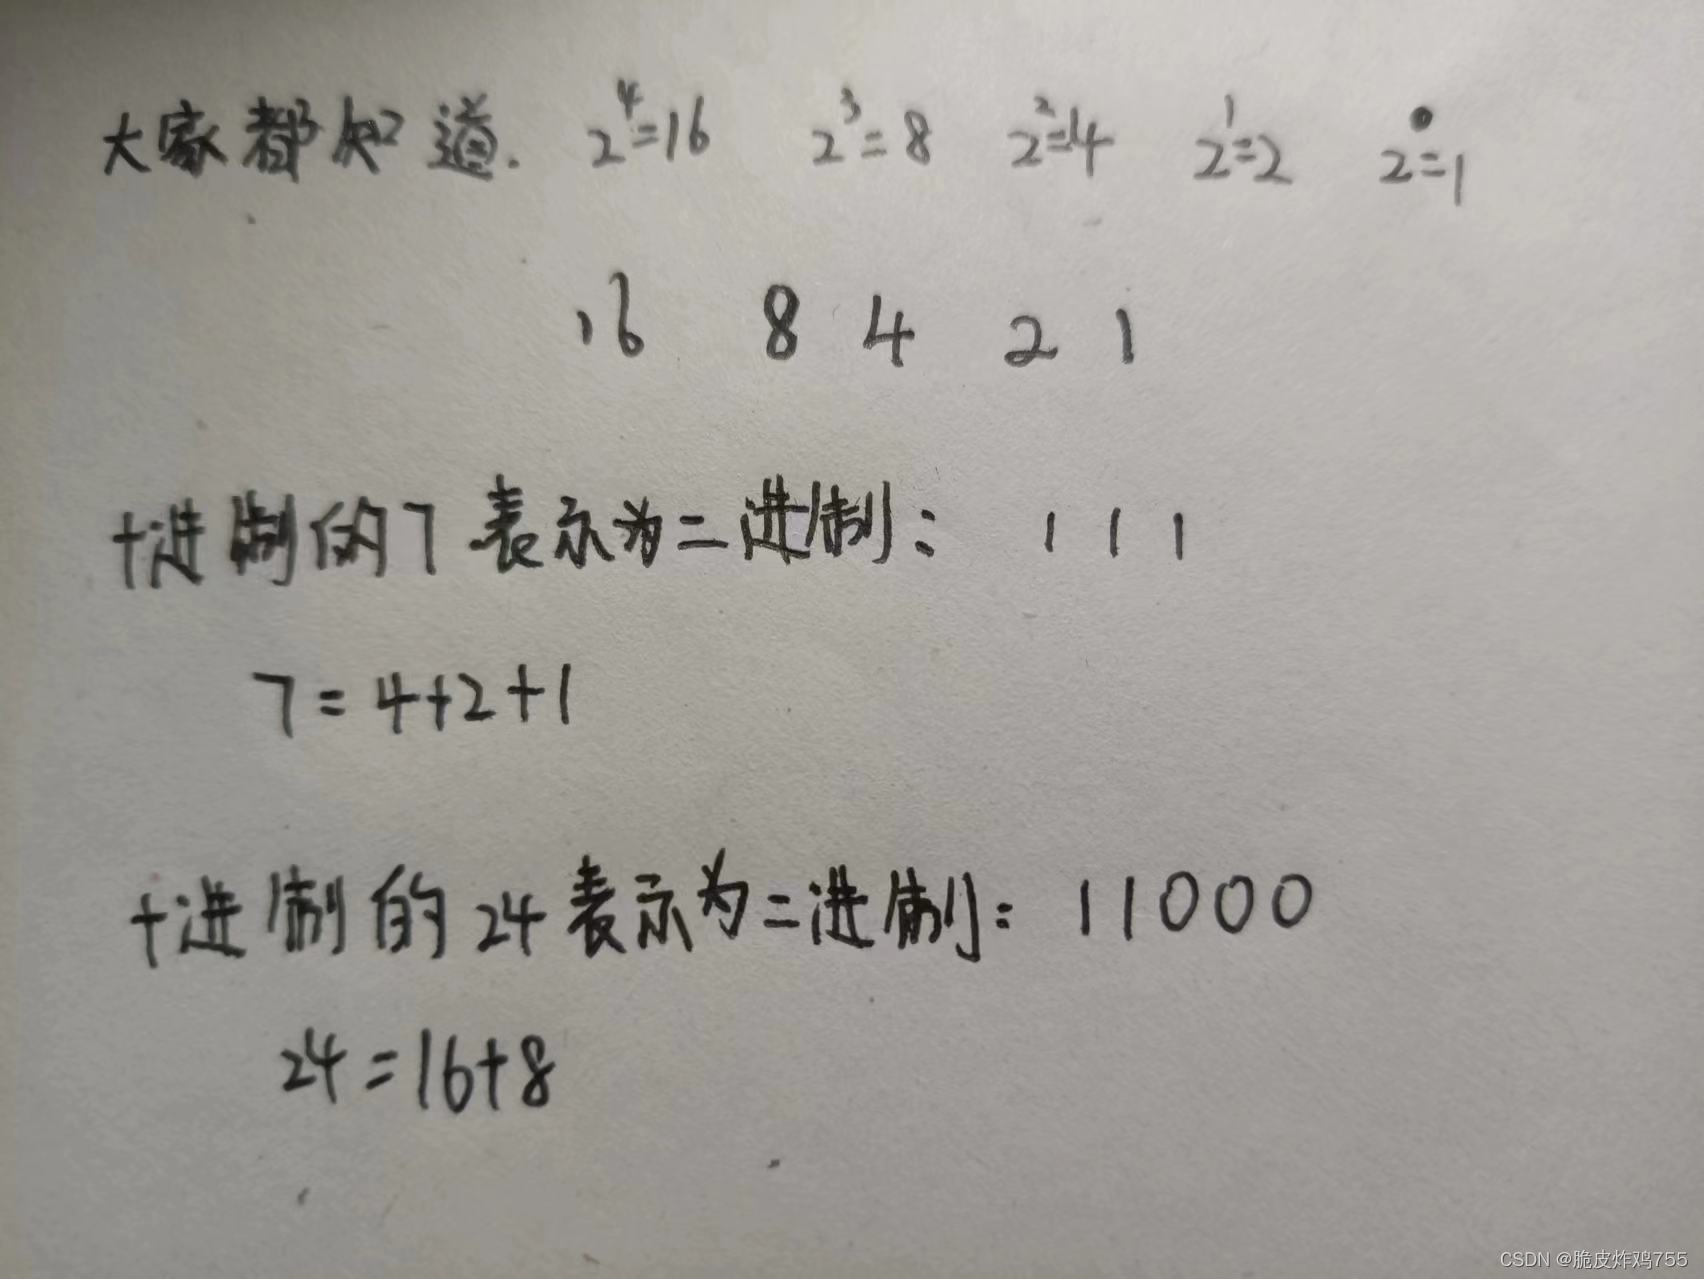 大家都知道. 2⁴=16 2³=8 2²=4 2¹=2 2⁰=1
16 8 4 2 1
十进制的7表示为二进制: 1 1 1
7=4+2+1
十进制的24表示为二进制: 11000
24=16+8
CSDN @脆皮炸鸡755